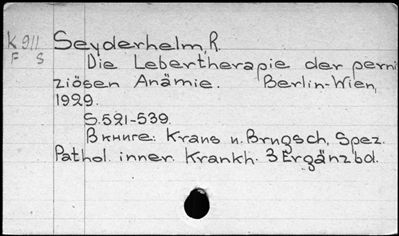 K 911 Seyderhelm, R.
F S Die Lebertherapie der perni
ziösen Anämie. Berlin-Wien,
1929.
S.521-539.
В книге: Kraus u. Brugsch, Spez.
Pathol. inner. Krankh. 3 Ergänzbd.